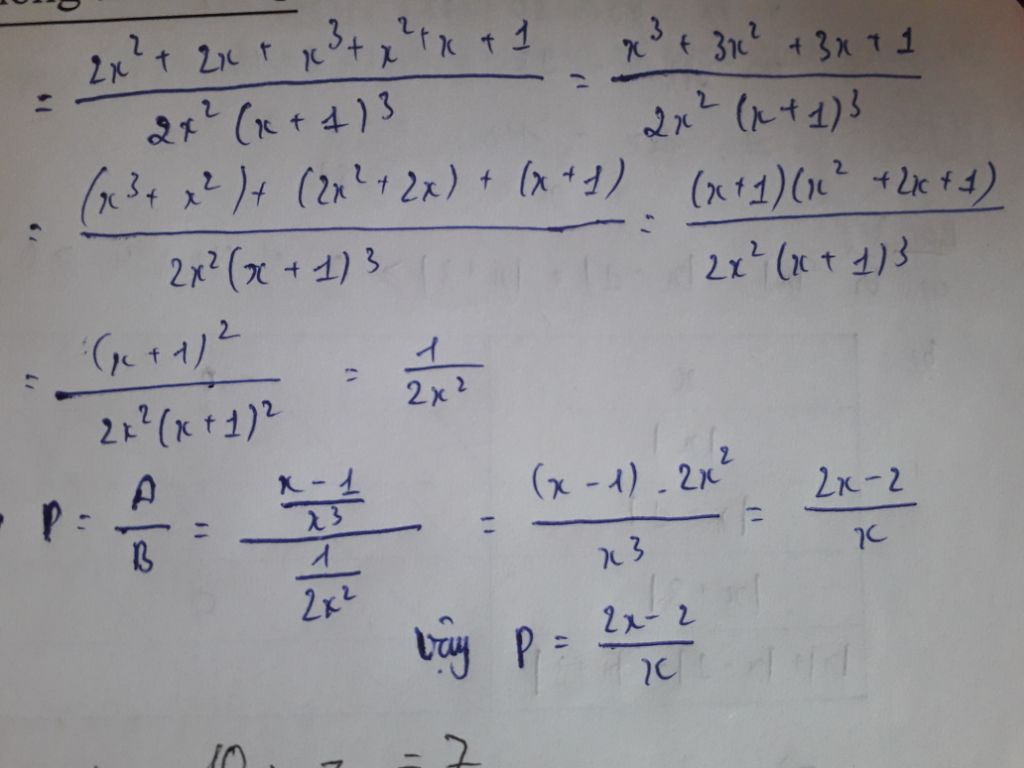 = (2x² + 2x + x³ + x² + x + 1)/(2x² (x + 1)³) = (x³ + 3x² + 3x + 1)/(2x² (x + 1)³)
= ((x³ + x²) + (2x² + 2x) + (x + 1))/(2x² (x + 1)³) = ((x+1)(x² + 2x + 1))/(2x² (x + 1)³)
= (x + 1)²/(2x² (x + 1)²) = 1/(2x²)
P = A/B = ((x - 1)/x³)/(1/(2x²)) = ((x - 1) . 2x²)/x³ = (2x - 2)/x
Vậy P = (2x - 2)/x
= 7